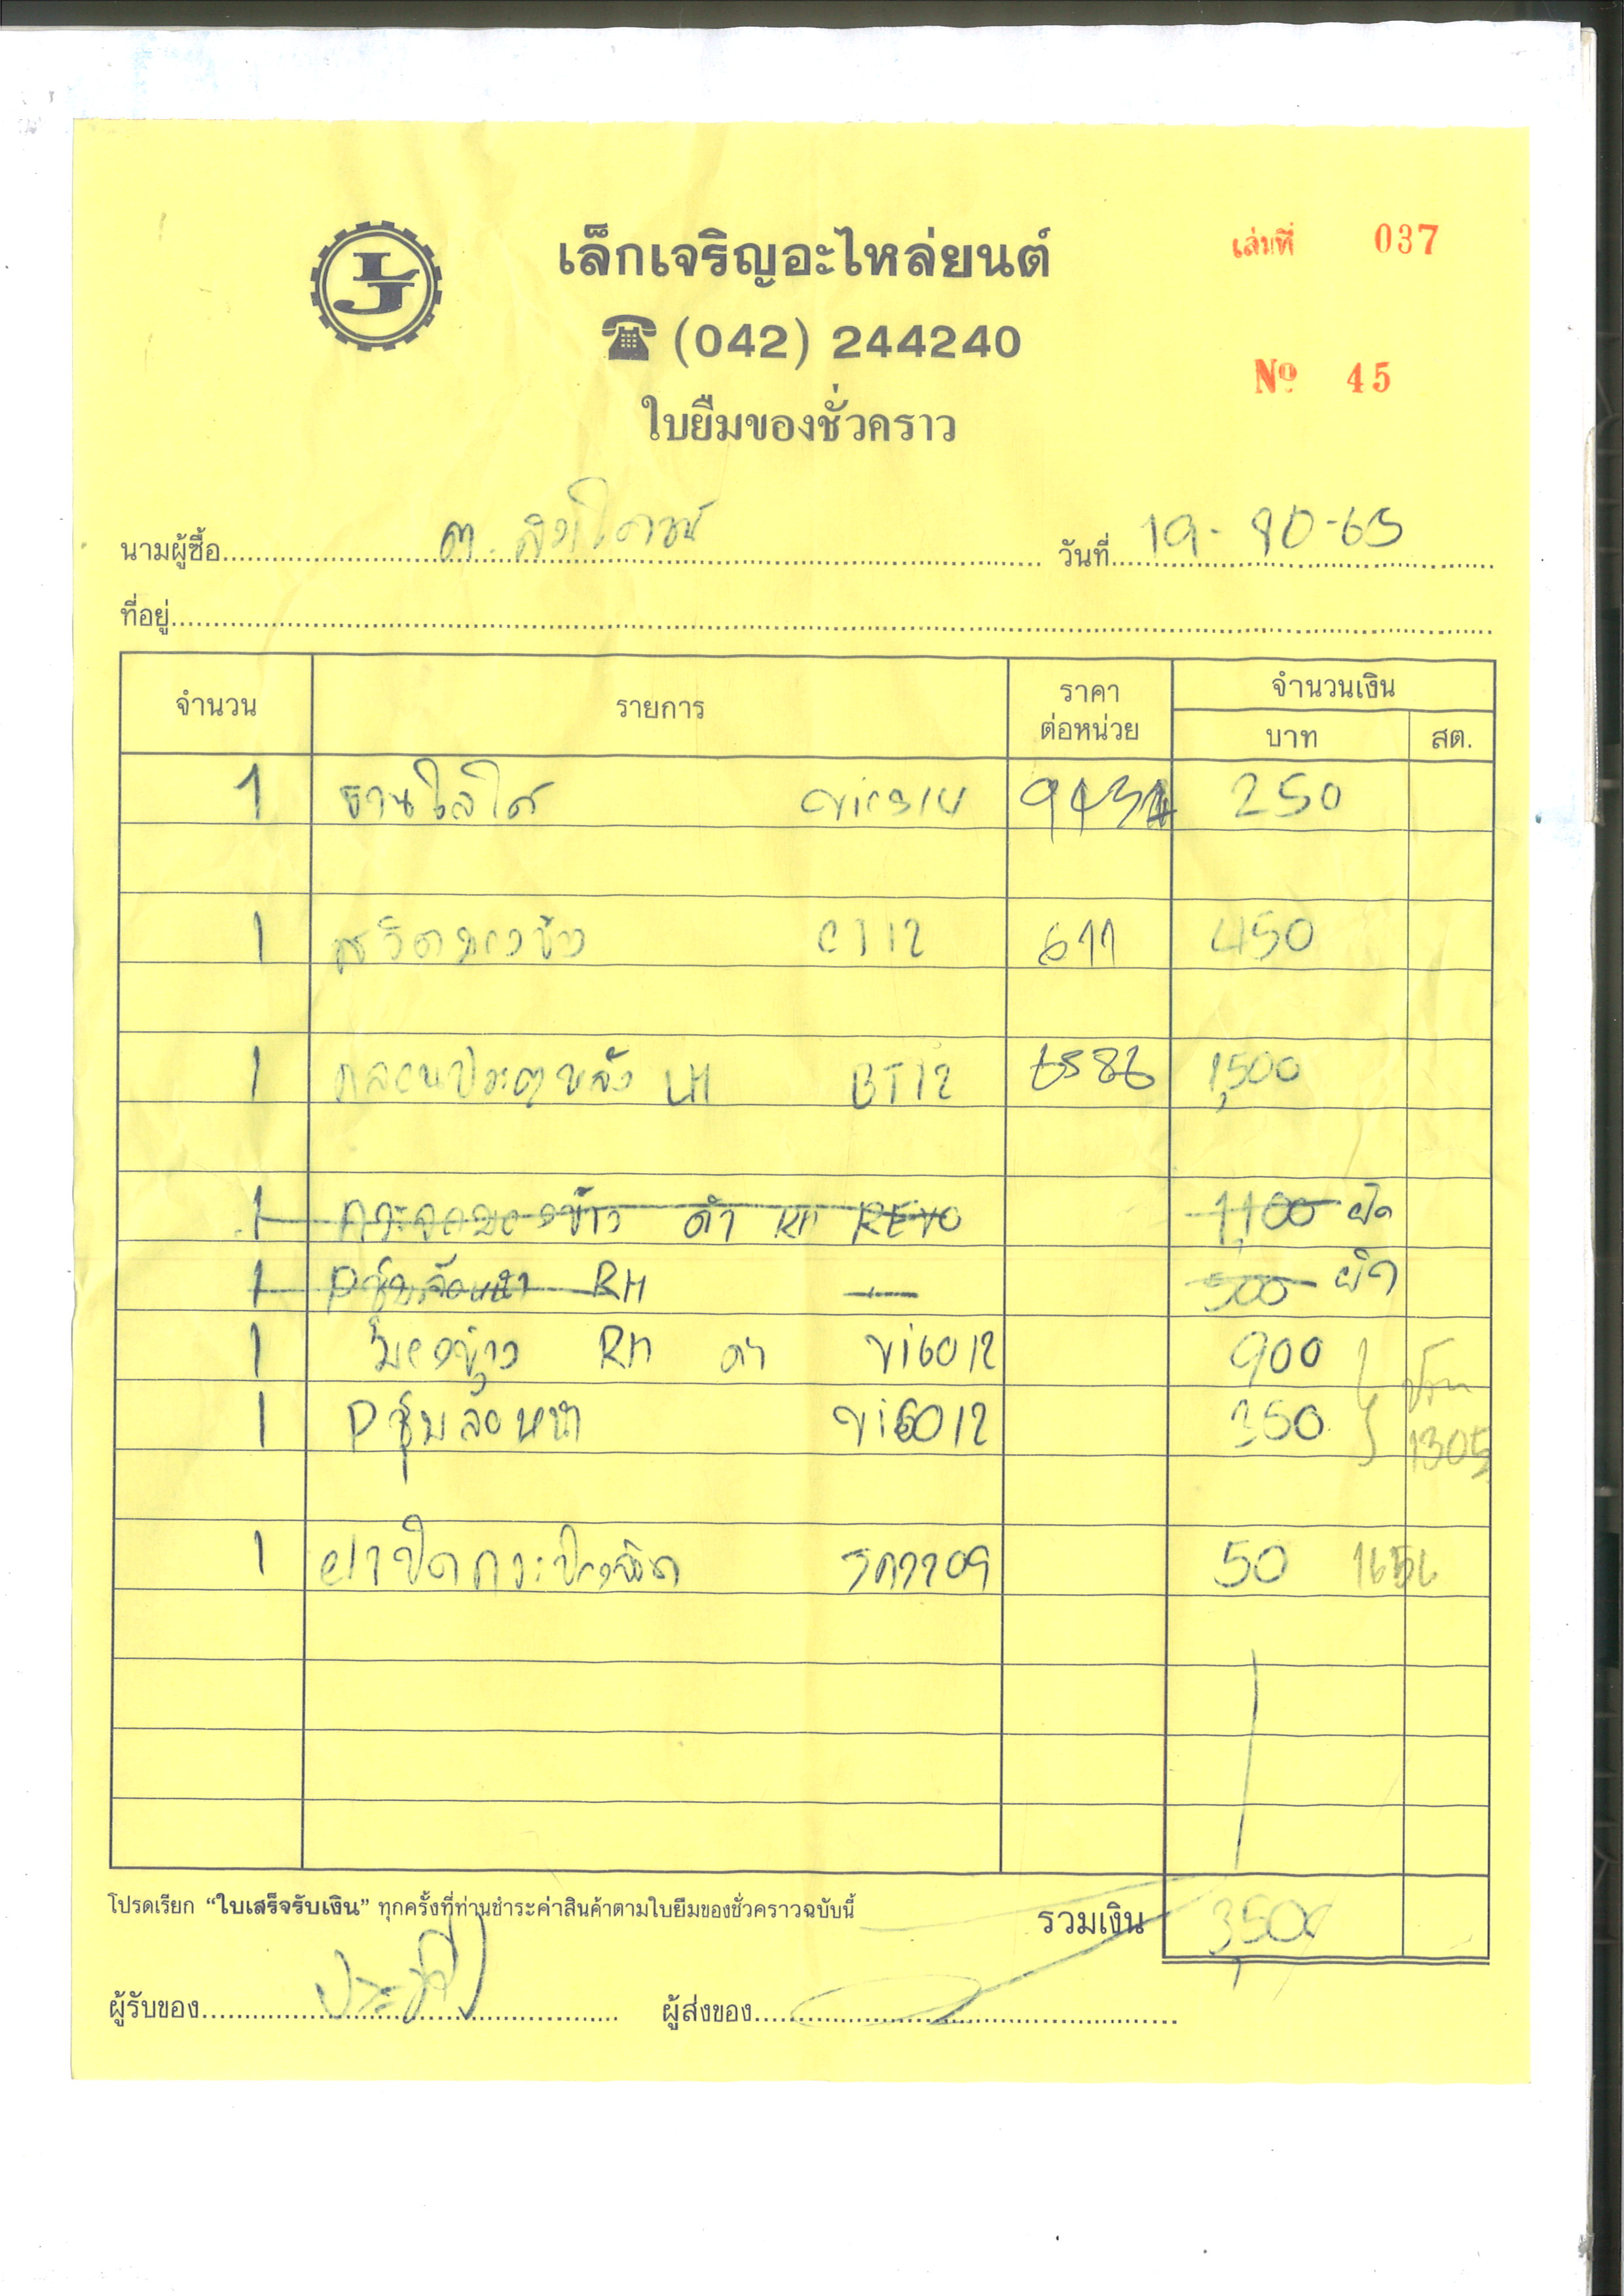 เล็กเจริญอะไหล่ยนต์
เล่มที่ 037
(042) 244240
Nº 45
ใบยืมของชั่วคราว
นามผู้ซื้อ วันที่ 19-10-65
ที่อยู่
จำนวน รายการ ราคาต่อหน่วย จำนวนเงิน
บาท สต.
1 250
1 สวิตมองข้าง CT12 611 450
1 กลอนประตูหลัง LH BT12 6586 1,500
1 กระจกมองข้าง ดำ RH REVO 1,100 ผิด
1 Pซุ้มล้อหน้า RH 500 ผิด
1 มองข้าง RH ดำ Vi6012 900
1 Pซุ้มล้อหน้า Vi6012 350
1305
1 ฝาปิดกระป๋องฉีด 50
โปรดเรียก “ใบเสร็จรับเงิน” ทุกครั้งที่ท่านชำระค่าสินค้าตามใบยืมของชั่วคราวฉบับนี้
รวมเงิน 3,500
ผู้รับของ ผู้ส่งของ